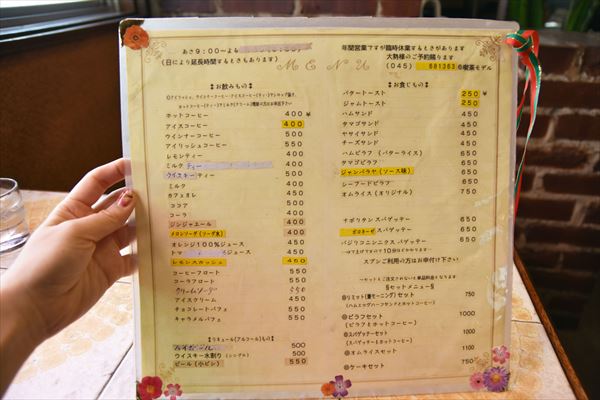 あさ9:00〜よる
(日により延長時間するときもあります)
年間営業ですが臨時休業するときがあります
大勢様のご予約賜ります
(045) 681363 @喫茶モデル
MENU
*お飲みもの*
ホットコーヒー 400 ¥
アイスコーヒー 400
ウインナーコーヒー 500
アイリッシュコーヒー 550
レモンティー 400
ミルクティー 400
ウイスキーティー 500
ミルク 400
カフェオレ 450
ココア 500
コーラ 400
ジンジャエール 400
メロンソーダ(ソーダ水) 400
オレンジ100%ジュース 450
トマ ジュース 450
レモンスカッシュ 450
コーヒーフロート 550
コーラフロート 550
クリームソーダ 550
アイスクリーム 450
チョコレートパフェ 550
キャラメルパフェ 550
*リキュール(アルコール)もの*
ハイボール 500
ウイスキー水割り(シングル) 500
ビール(小ビン) 550
*お食じもの*
バタートースト 250 ¥
ジャムトースト 250
ハムサンド 450
タマゴサンド 450
ヤサイサンド 450
チーズサンド 450
ハムピラフ(バターライス) 650
タマゴピラフ 650
ジャンバラヤ(ソース味) 650
シーフードピラフ 650
オムライス(オリジナル) 750
ナポリタンスパゲッテー 650
ボロネーゼスパゲッテー 650
バジリコニンニクスパゲッテー 650
スプンご利用の方はお申付け下さい
→セットもご注文されないと単品料金となります
§セットメニュー§
@リミット(量モーニング)セット 750
(ハムエッグハーフサンドとホットコーヒー)
@ピラフセット 1000
(ピラフとホットコーヒー)
@スパゲッテーセット 1000
(スパゲッテーとホットコーヒー)
@オムライスセット 1100
@ケーキセット 750